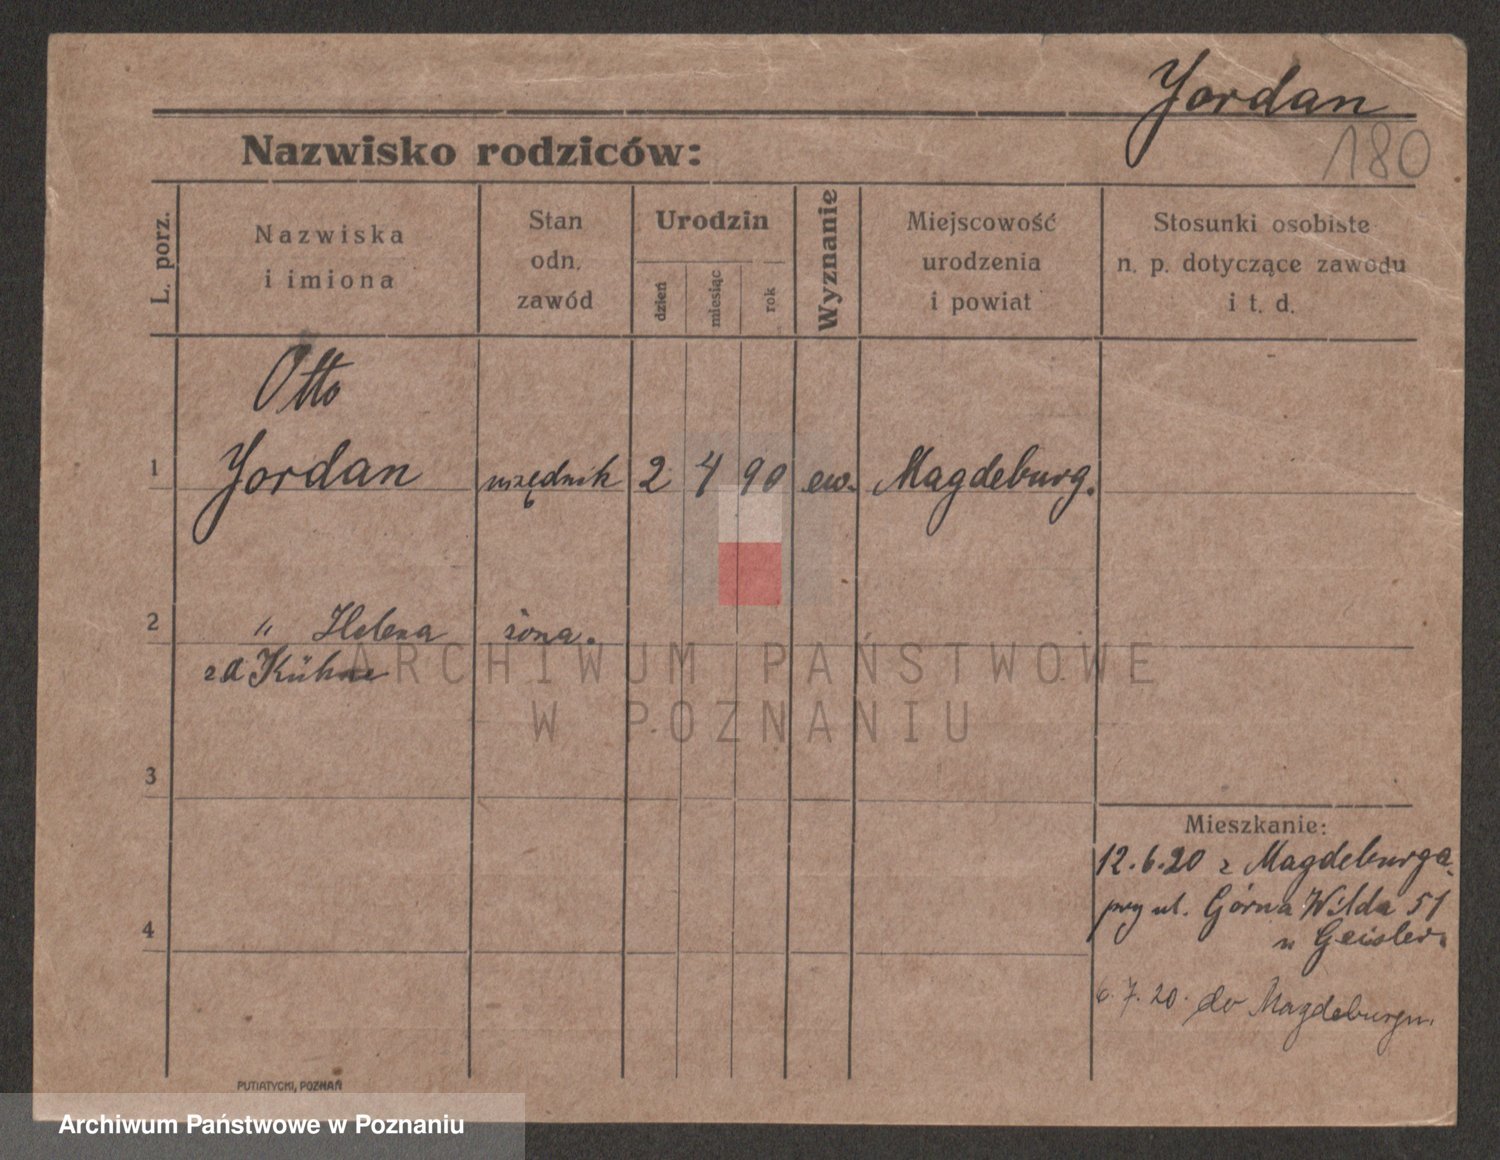 Jordan
180
Nazwisko rodziców:
L. porz.
Nazwiska
i imiona
Stan
odn.
zawód
Urodzin
dzień
miesiąc
rok
Wyznanie
Miejscowość
urodzenia
i powiat
Stosunki osobiste
n. p. dotyczące zawodu
i t. d.
Otto
1 Jordan urzędnik 2 4 90 ew. Magdeburg.
2 " Helena żona.
zd Kühne
ARCHIWUM PAŃSTWOWE
W POZNANIU
3
Mieszkanie:
12.6.20 z Magdeburga.
przy ul. Górna Wilda 51
4
u Geisler.
6.7.20. do Magdeburgu.
PUTIATYCKI, POZNAŃ
Archiwum Państwowe w Poznaniu